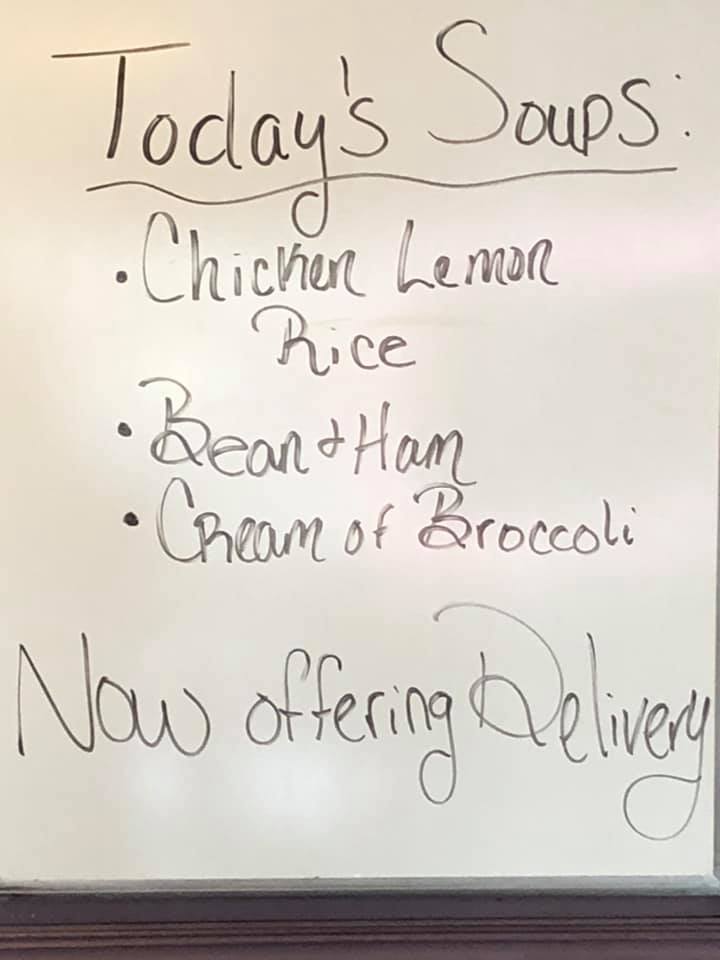 Today's Soups:
• Chicken Lemon
Rice
• Bean & Ham
• Cream of Broccoli
Now offering Delivery